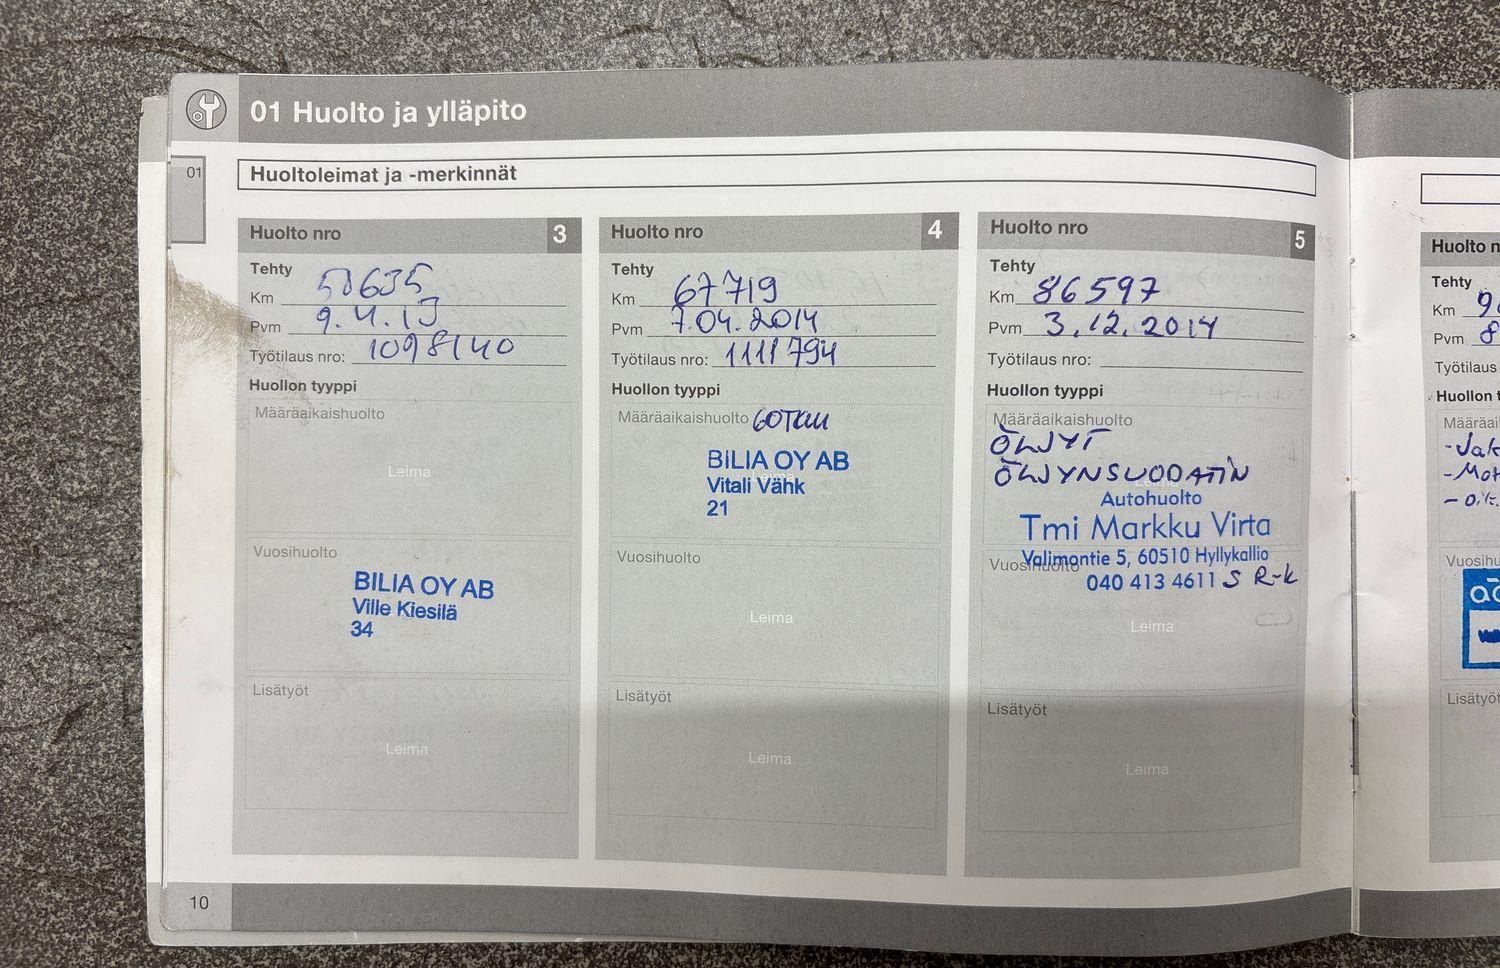 01 Huolto ja ylläpito
01
Huoltoleimat ja -merkinnät
Huolto nro 3
Tehty
Km 50635
Pvm 9.4.13
Työtilaus nro: 1098140
Huollon tyyppi
Määräaikaishuolto
Leima
Vuosihuolto
BILIA OY AB
Ville Kiesilä
34
Lisätyöt
Leima
Huolto nro 4
Tehty
Km 67719
Pvm 7.04.2014
Työtilaus nro: 1111794
Huollon tyyppi
Määräaikaishuolto 60TKM
BILIA OY AB
Vitali Vähk
21
Vuosihuolto
Leima
Lisätyöt
Leima
Huolto nro 5
Tehty
Km 86597
Pvm 3.12.2014
Työtilaus nro:
Huollon tyyppi
Määräaikaishuolto
ÖLJYT
ÖLJYNSUODATIN
Autohuolto
Tmi Markku Virta
Valimontie 5, 60510 Hyllykallio
Vuosihuolto
040 413 4611 S R-k
Leima
Lisätyöt
Leima
Huolto n
Tehty
Km 9
Pvm 8
Työtilaus
Huollon t
Määräai
Vuosihu
Lisätyöt
10